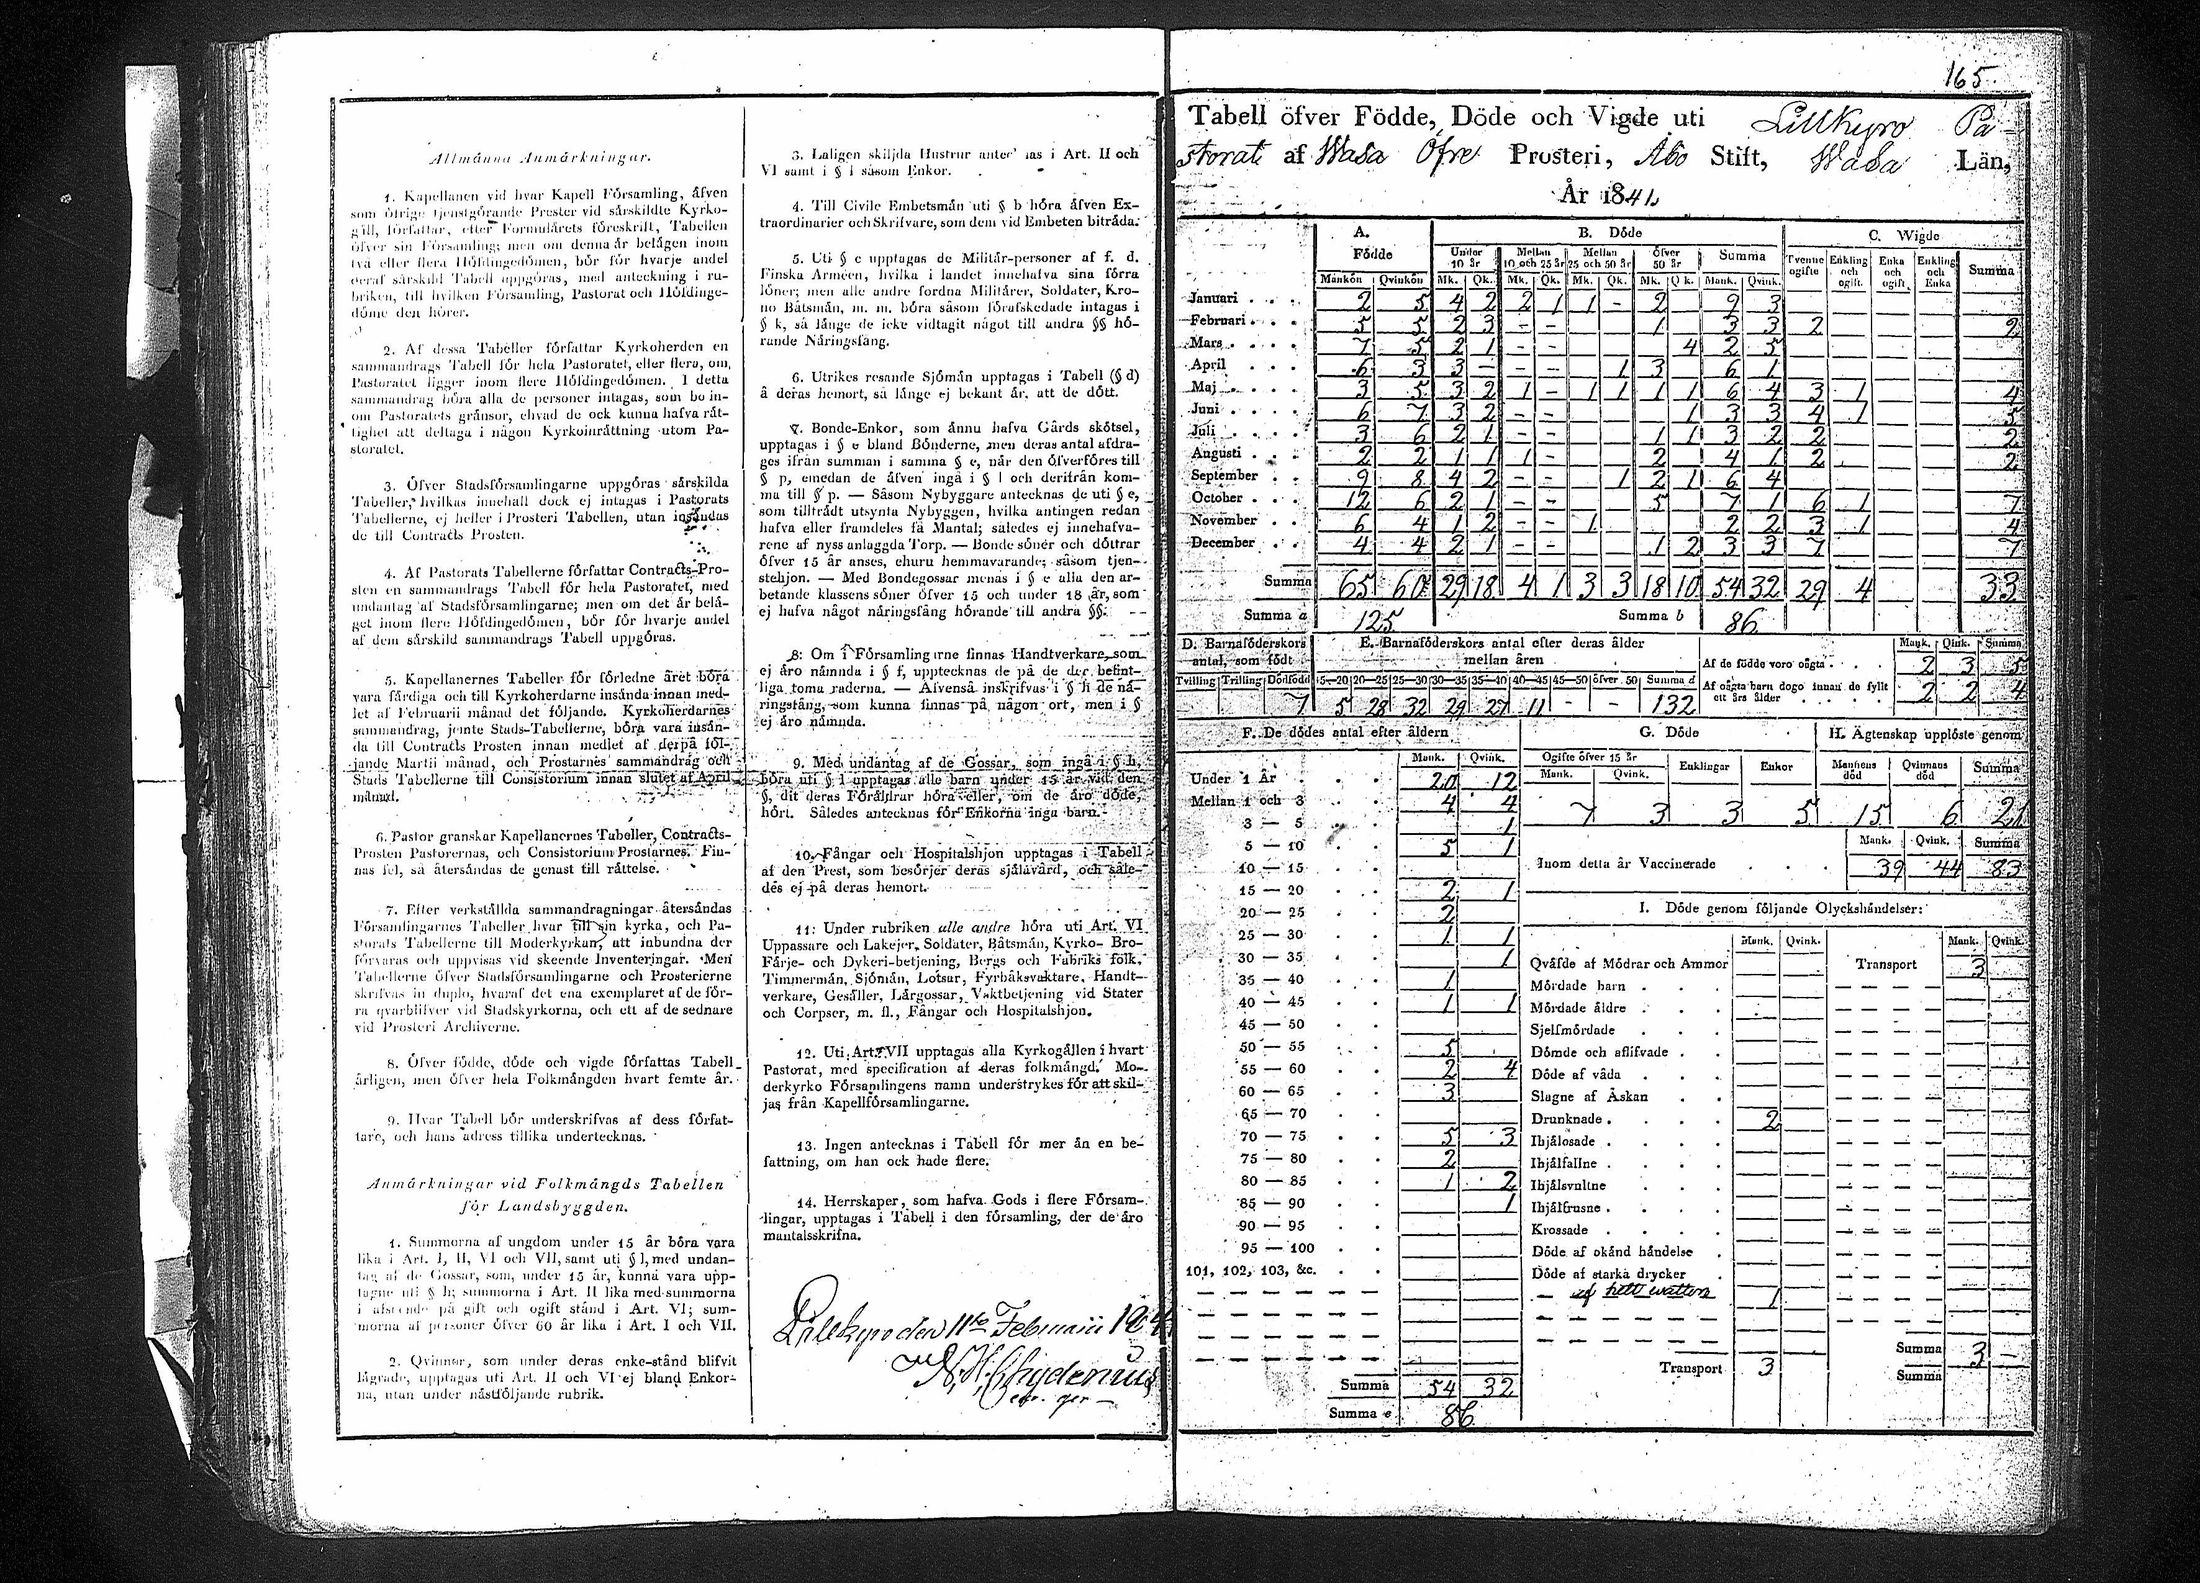 Allmänna Anmärkningar.
1. Kapellanen vid hvar Kapell Församling, äfven
som öfrige tjenstgörande Prester vid särskildte Kyrko-
gäll, författar, efter Formulärets föreskrift, Tabellen
öfver sin Församling; men om denna är belägen inom
två eller flera Höfdingedömen, bör för hvarje andel
deraf särskild Tabell uppgöras, med anteckning i ru-
briken, till hvilken Församling, Pastorat och Höfdinge-
döme den hörer.
2. Af dessa Tabeller författar Kyrkoherden en
sammandrags Tabell för hela Pastoratet, eller flera, om
Pastoratet ligger inom flere Höfdingedömen. I detta
sammandrag böra alla de personer intagas, som bo in-
om Pastoratets gränsor, ehvad de ock kunna hafva rät-
tighet att deltaga i någon Kyrkoinrättning utom Pa-
storatet.
3. Öfver Stadsförsamlingarne uppgöras särskilda
Tabeller, hvilkas innehåll dock ej intagas i Pastorats
Tabellerne, ej heller i Prosteri Tabellen, utan insändas
de till Contracts Prosten.
4. Af Pastorats Tabellerne författar Contracts-Pro-
sten en sammandrags Tabell för hela Pastoratet, med
undantag af Stadsförsamlingarne; men om det är belä-
get inom flere Höfdingedömen, bör för hvarje andel
af dem särskild sammandrags Tabell uppgöras.
5. Kapellanernes Tabeller för förledne året böra
vara färdiga och till Kyrkoherdarne insända innan med-
let af Februarii månad det följande. Kyrkoherdarnes
sammandrag, jemte Stads-Tabellerne, böra vara insän-
da till Contracts Prosten innan medlet af derpå föl-
jande Martii månad, och Prostarnes sammandrag och
Stads Tabellerne till Consistorium innan slutet af April
månad.
6. Pastor granskar Kapellanernes Tabeller, Contracts-
Prosten Pastorernas, och Consistorium Prostarnes. Fin-
nas fel, så återsändas de genast till rättelse.
7. Efter verkställda sammandragningar återsändas
Församlingarnes Tabeller hvar till sin kyrka, och Pa-
storats Tabellerne till Moderkyrkan, att inbundna der
förvaras och uppvisas vid skeende Inventeringar. Men
Tabellerne öfver Stadsförsamlingarne och Prosterierne
skrifvas in duplo, hvaraf det ena exemplaret af de för-
ra qvarblifver vid Stadskyrkorna, och ett af de sednare
vid Prosteri Archiverne.
8. Öfver födde, döde och vigde författas Tabell
årligen, men öfver hela Folkmängden hvart femte år.
9. Hvar Tabell bör underskrifvas af dess förfat-
tare, och hans adress tillika undertecknas.
Anmärkningar vid Folkmängds Tabellen
för Landsbyggden.
1. Summorna af ungdom under 15 år böra vara
lika i Art. I, II, VI och VII, samt uti § l, med undan-
tag af de Gossar, som, under 15 år, kunna vara upp-
tagne uti § h; summorna i Art. II lika med summorna
i afseende på gift och ogift stånd i Art. VI; sum-
morna af personer öfver 60 år lika i Art. I och VII.
2. Qvinnor, som under deras enke-stånd blifvit
lägrade, upptagas uti Art. II och VI ej bland Enkor-
na, utan under nästföljande rubrik.
3. Laligen skiljda Hustrur antecknas i Art. II och
VI samt i § i såsom Enkor.
4. Till Civile Embetsmän uti § b höra äfven Ex-
traordinarier och Skrifvare, som dem vid Embeten biträda.
5. Uti § c upptagas de Militär-personer af f. d.
Finska Arméen, hvilka i landet innehafva sina förra
löner; men alle andre fordna Militärer, Soldater, Kro-
no Båtsmän, m. m. böra såsom förafskedade intagas i
§ k, så länge de icke vidtagit något till andra §§ hö-
rande Näringsfång.
6. Utrikes resande Sjömän upptagas i Tabell (§ d)
å deras hemort, så länge ej bekant är, att de dött.
7. Bonde-Enkor, som ännu hafva Gårds skötsel,
upptagas i § e bland Bönderne, men deras antal afdra-
ges ifrån summan i samma § e, när den öfverföres till
§ p, emedan de äfven ingå i § l och derifrån kom-
ma till § p. — Såsom Nybyggare antecknas de uti § e,
som tillträdt utsynta Nybyggen, hvilka antingen redan
hafva eller framdeles få Mantal; således ej innehafva-
rene af nyss anlaggda Torp. — Bonde söner och döttrar
öfver 15 år anses, ehuru hemmavarande, såsom tjen-
stehjon. — Med Bondegossar menas i § e alla den ar-
betande klassens söner öfver 15 och under 18 år, som
ej hafva något näringsfång hörande till andra §§.
8. Om i Församlingarne finnas Handtverkare, som
ej äro nämnda i § f, upptecknas de på de der befint-
liga toma raderna. — Äfvenså inskrifvas i § h de nä-
ringsfång, som kunna finnas på någon ort, men i §
ej äro nämnda.
9. Med undantag af de Gossar, som ingå i § h,
böra uti § l upptagas alle barn under 15 år vid den
§, dit deras Föräldrar höra eller, om de äro döde,
hört. Således antecknas för Enkorna inga barn.
10. Fångar och Hospitalshjon upptagas i Tabell
af den Prest, som besörjer deras själavård, och såle-
des ej på deras hemort.
11. Under rubriken alle andre höra uti Art. VI
Uppassare och Lakejer, Soldater, Båtsmän, Kyrko- Bro-
Färje- och Dykeri-betjening, Bergs och Fabriks folk,
Timmermän, Sjömän, Lotsar, Fyrbåksvaktare, Handt-
verkare, Gesäller, Lärgossar, Vaktbetjening vid Stater
och Corpser, m. fl., Fångar och Hospitalshjon.
12. Uti Art. VII upptagas alla Kyrkogällen i hvart
Pastorat, med specification af deras folkmängd. Mo-
derkyrko Församlingens namn understrykes för att skil-
jas från Kapellförsamlingarne.
13. Ingen antecknas i Tabell för mer än en be-
fattning, om han ock hade flere.
14. Herrskaper, som hafva Gods i flere Försam-
lingar, upptagas i Tabell i den församling, der de äro
mantalsskrifna.
Lillkyro den 11te Februarii 184
N. H. Chydenius
165.
Tabell öfver Födde, Döde och Vigde uti Lillkyro Pa-
storat af Wasa Öfre Prosteri, Åbo Stift, Wasa Län,
År 1841.
A. Födde B. Döde C. Wigde
Under 10 år Mellan 10 och 25 år Mellan 25 och 50 år Öfver 50 år Summa Tvenne ogifte Enkling och ogift. Enka och ogift. Enkling och Enka Summa
Mankön Qvinkön Mk. Qk. Mk. Qk. Mk. Qk. Mk. Qk. Mank. Qvink.
Januari 2 5 4 2 2 1 1 - 2 9 3
Februari 5 5 2 3 - - 1 3 3 2 2
Mars 7 5 2 1 - - 4 2 5
April 6 3 3 - - - 1 3 6 1
Maj 3 5 3 2 1 - 1 1 1 1 6 4 3 1 4
Juni 6 7 3 2 - - 1 3 3 4 1 5
Juli 3 6 2 1 - - 1 1 3 2 2 2
Augusti 2 2 1 1 1 - 2 4 1 2 2
September 9 8 4 2 - - 1 2 1 6 4
October 12 6 2 1 - - 5 7 1 6 1 7
November 6 4 1 2 - - 1 2 2 3 1 4
December 4 4 2 1 - - 1 2 3 3 7 7
Summa 65 60 29 18 4 1 3 3 18 10 54 32 29 4 33
Summa a 125 Summa b 86
D. Barnaföderskors antal, som födt
Tvilling Trilling Dödfödd
7
E. Barnaföderskors antal efter deras ålder
mellan åren
15—20 20—25 25—30 30—35 35—40 40—45 45—50 öfver 50 Summa d
5 28 32 29 27 11 - - 132
Mank. Qink. Summa
Af de födde voro oägta 2 3 5
Af oägta barn dogo innan de fyllt
ett års ålder 2 2 4
F. De dödes antal efter åldern
Mank. Qvink.
Under 1 År 20 12
Mellan 1 och 3 4 4
3 — 5 1
5 — 10 5 1
10 — 15
15 — 20 2 1
20 — 25 2
25 — 30 1 1
30 — 35 1
35 — 40 1
40 — 45 1 1
45 — 50
50 — 55 5
55 — 60 2 4
60 — 65 3
65 — 70
70 — 75 5 3
75 — 80 2
80 — 85 1 2
85 — 90 1
90 — 95
95 — 100
101, 102, 103, &c.
Summa 54 32
Summa e 86
G. Döde
Ogifte öfver 15 år Enklingar Enkor
Mank. Qvink.
7 3 3 5
H. Ägtenskap upplöste genom
Mannens död Qvinnans död Summa
15 6 21
Mank. Qvink. Summa
Inom detta år Vaccinerade 39 44 83
I. Döde genom följande Olyckshändelser:
Mank. Qvink. Mank. Qvink.
Qväfde af Mödrar och Ammor Transport 3
Mördade barn
Mördade äldre
Sjelfmördade
Dömde och aflifvade
Döde af våda
Slagne af Åskan
Drunknade 2
Ihjälosade
Ihjälfallne
Ihjälsvultne
Ihjälfrusne
Krossade
Döde af okänd händelse
Döde af starka drycker
— af hett watten 1
Summa 3 -
Transport 3 Summa